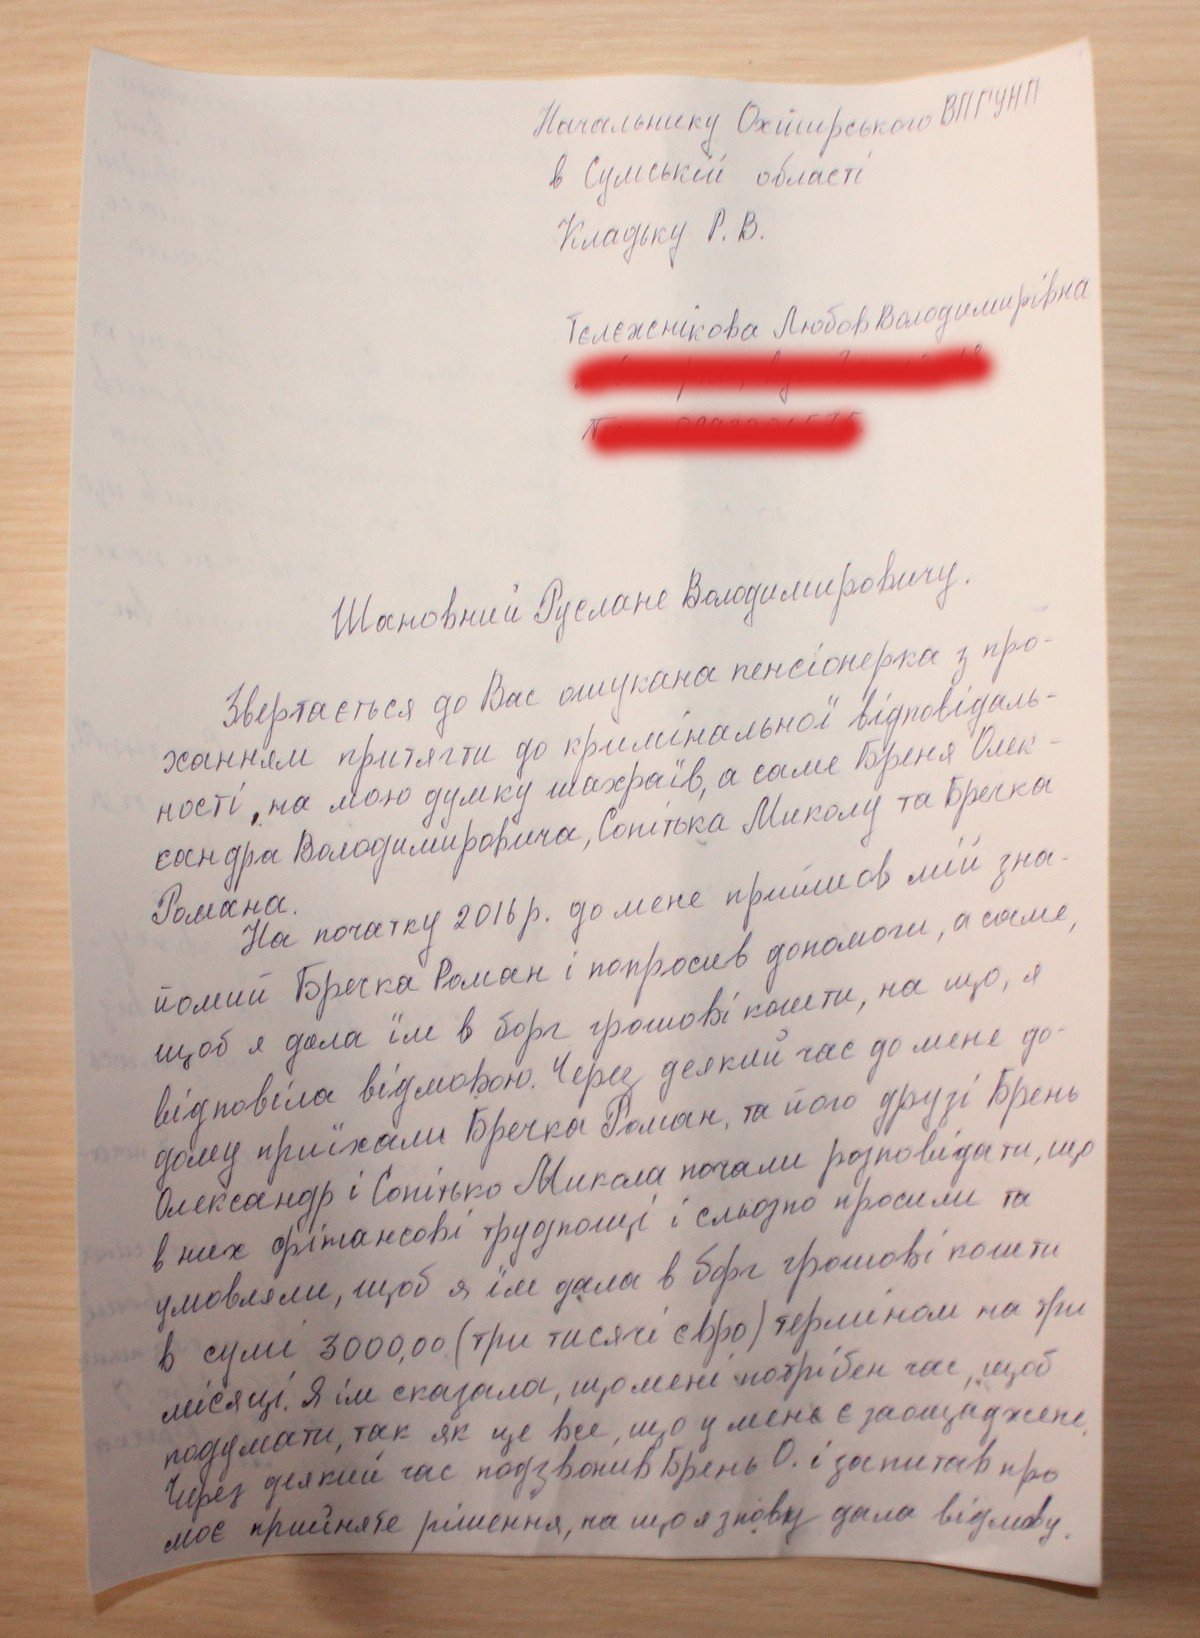 Начальнику Охтирського ВПГУНП
в Сумській області
Кладьку Р. В.
Тєлєжнікова Любов Володимирівна
Шановний Руслане Володимировичу.
Звертається до Вас ошукана пенсіонерка з про-
ханням притягти до кримінальної відповідаль-
ності, на мою думку шахраїв, а саме Бреня Олек-
сандра Володимировича, Сопітька Миколу та Бречка
Романа.
На початку 2016 р. до мене прийшов мій зна-
йомий Бречка Роман і попросив допомоги, а саме,
щоб я дала їм в борг грошові кошти, на що, я
відповіла відмовою. Через деякий час до мене до-
дому приїхали Бречка Роман, та його друзі Брень
Олександр і Сопітько Микола почали розповідати, що
в них фінансові труднощі і сльозно просили та
умовляли, щоб я їм дала в борг грошові кошти
в сумі 3000,00 (три тисячі євро) терміном на три
місяці. Я їм сказала, що мені потрібен час, щоб
подумати, так як це все, що у мене є заощаджене.
Через деякий час подзвонив Брень О. і запитав про
моє прийняте рішення, на що я знову дала відмову.